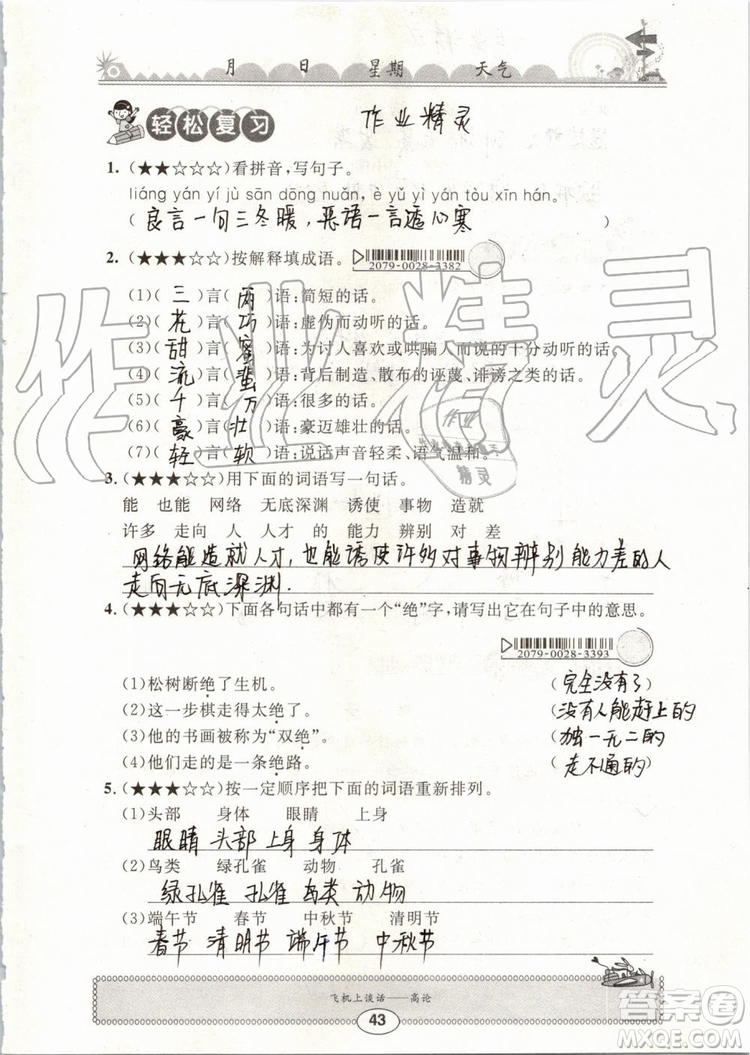 月 日 星期 天气
轻松复习 作业精灵
1. (★★☆☆☆)看拼音,写句子。
liáng yán yí jù sān dōng nuǎn, è yǔ yì yán tòu xīn hán。
(良言一句三冬暖,恶语一言透心寒)
2. (★★★☆☆)按解释填成语。
2079-0028-3382
(1)(三)言(两)语:简短的话。
(2)(花)言(巧)语:虚伪而动听的话。
(3)(甜)言(蜜)语:为讨人喜欢或哄骗人而说的十分动听的话。
(4)(流)言(蜚)语:背后制造、散布的诬蔑、诽谤之类的话。
(5)(千)言(万)语:很多的话。
(6)(豪)言(壮)语:豪迈雄壮的话。
(7)(轻)言(软)语:说话声音轻柔、语气温和。
3. (★★★☆☆)用下面的词语写一句话。
能 也能 网络 无底深渊 诱使 事物 造就
许多 走向 人 人才 的 能力 辨别 对 差
网络能造就人才,也能诱使许多对事物辨别能力差的人
走向无底深渊.
4. (★★★☆☆)下面各句话中都有一个“绝”字,请写出它在句子中的意思。
2079-0028-3393
(1)松树断绝了生机。 (完全没有了)
(2)这一步棋走得太绝了。 (没有人能赶上的)
(3)他的书画被称为“双绝”。 (独一无二的)
(4)他们走的是一条绝路。 (走不通的)
5. (★★★☆☆)按一定顺序把下面的词语重新排列。
(1)头部 身体 眼睛 上身
眼睛 头部 上身 身体
(2)鸟类 绿孔雀 动物 孔雀
绿孔雀 孔雀 鸟类 动物
(3)端午节 春节 中秋节 清明节
春节 清明节 端午节 中秋节
飞机上谈话——高论
43
作业精灵
作业
精灵
答案圈